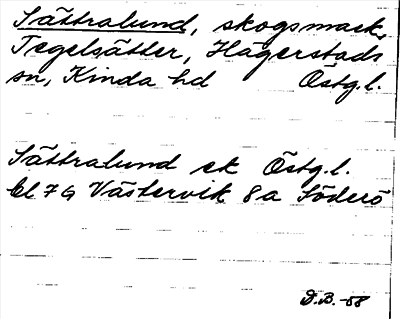 Sättralund, skogsmark,
Tegelsätter, Hägerstads
sn, Kinda hd Östg.l.
Sättralund ek Östg.l.
bl 7 G Västervik 8a Söderö
D.B. -58